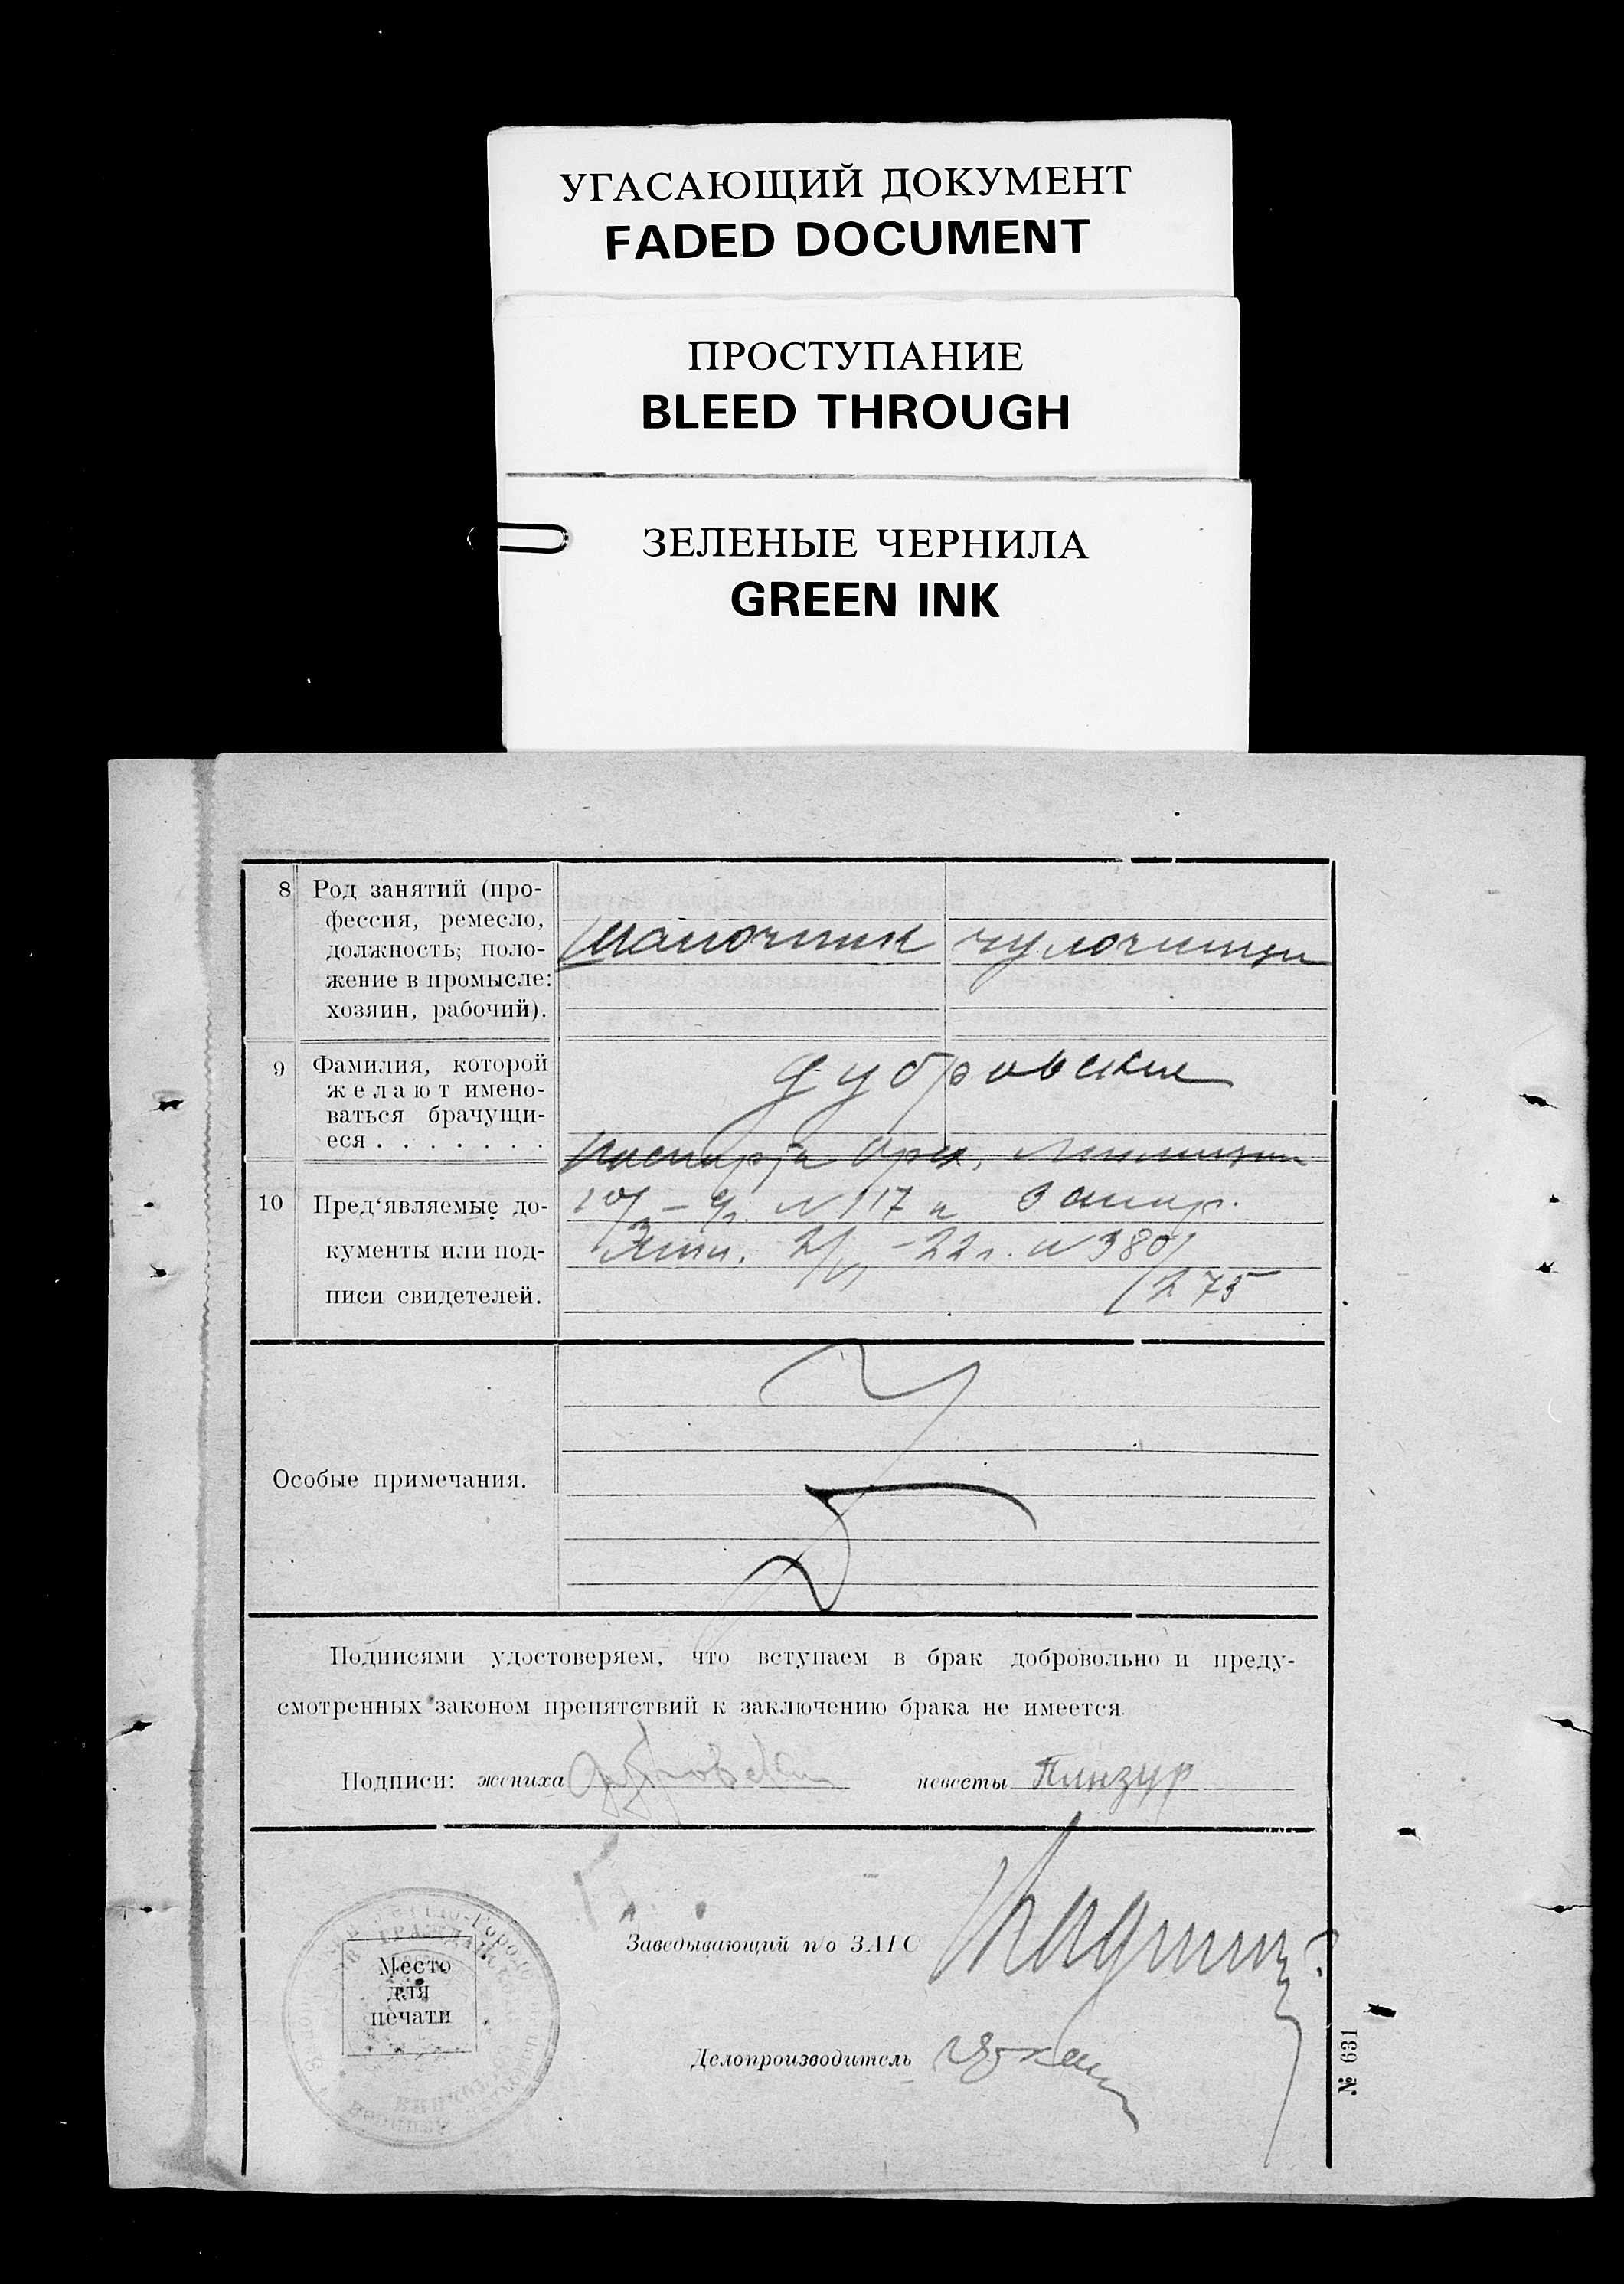 УГАСАЮЩИЙ ДОКУМЕНТ
FADED DOCUMENT
ПРОСТУПАНИЕ
BLEED THROUGH
ЗЕЛЕНЫЕ ЧЕРНИЛА
GREEN INK
8 Род занятий (про-
фессия, ремесло,
должность; поло-
жение в промысле:
хозяин, рабочий).
Шапочник чулочница
9 Фамилия, которой
желают имено-
ваться брачущи-
еся . . . . . . .
Дубровские
10 Пред'являемые до-
кументы или под-
писи свидетелей.
№ 117 и
-22 г. № 380/
275
Особые примечания.
Подписями удостоверяем, что вступаем в брак добровольно и преду-
смотренных законом препятствий к заключению брака не имеется.
Подписи: жениха Дубровский невесты Пинзур
Заведывающий п/о ЗАГС
Место
для
печати
Делопроизводитель
№ 631